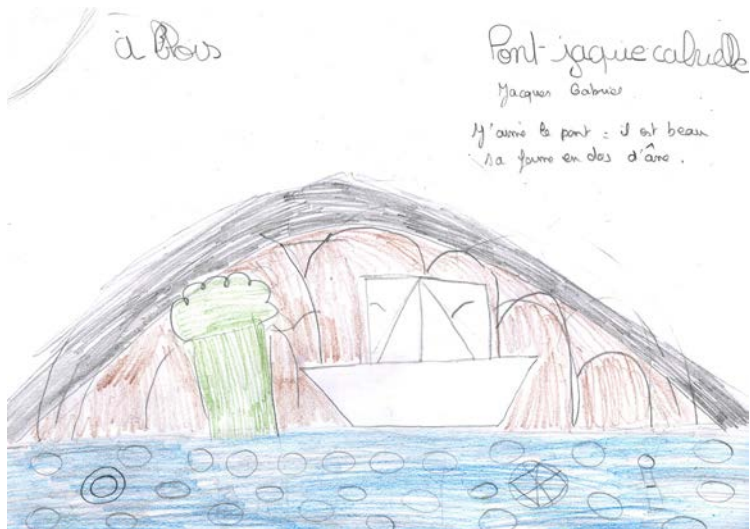 à Blois
Pont-jaquie cabrielle
Jacques Gabriel
J'aime le pont : il est beau
sa forme en dos d'âne.